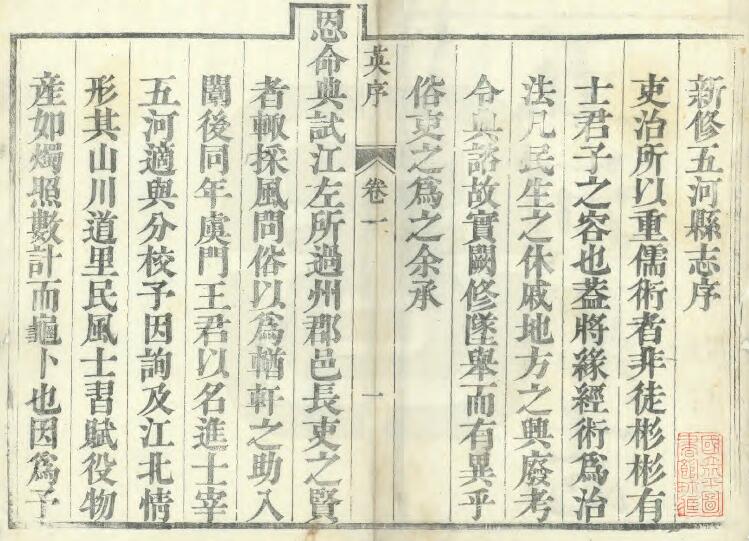 新修五河縣志序
吏治所以重儒術者非徒彬彬有
士君子之容也葢將緣經術爲治
法凡民生之休戚地方之興廢考
令典諮故實闕修墜舉而有異乎
俗吏之爲之余承
英序
卷一
一
恩命典試江左所過州郡邑長吏之賢
者輙採風問俗以爲輶軒之助入
闈後同年虞門王君以名進士宰
五河適與分校予因詢及江北情
形其山川道里民風士習賦役物
産如燭照數計而龜卜也因爲予